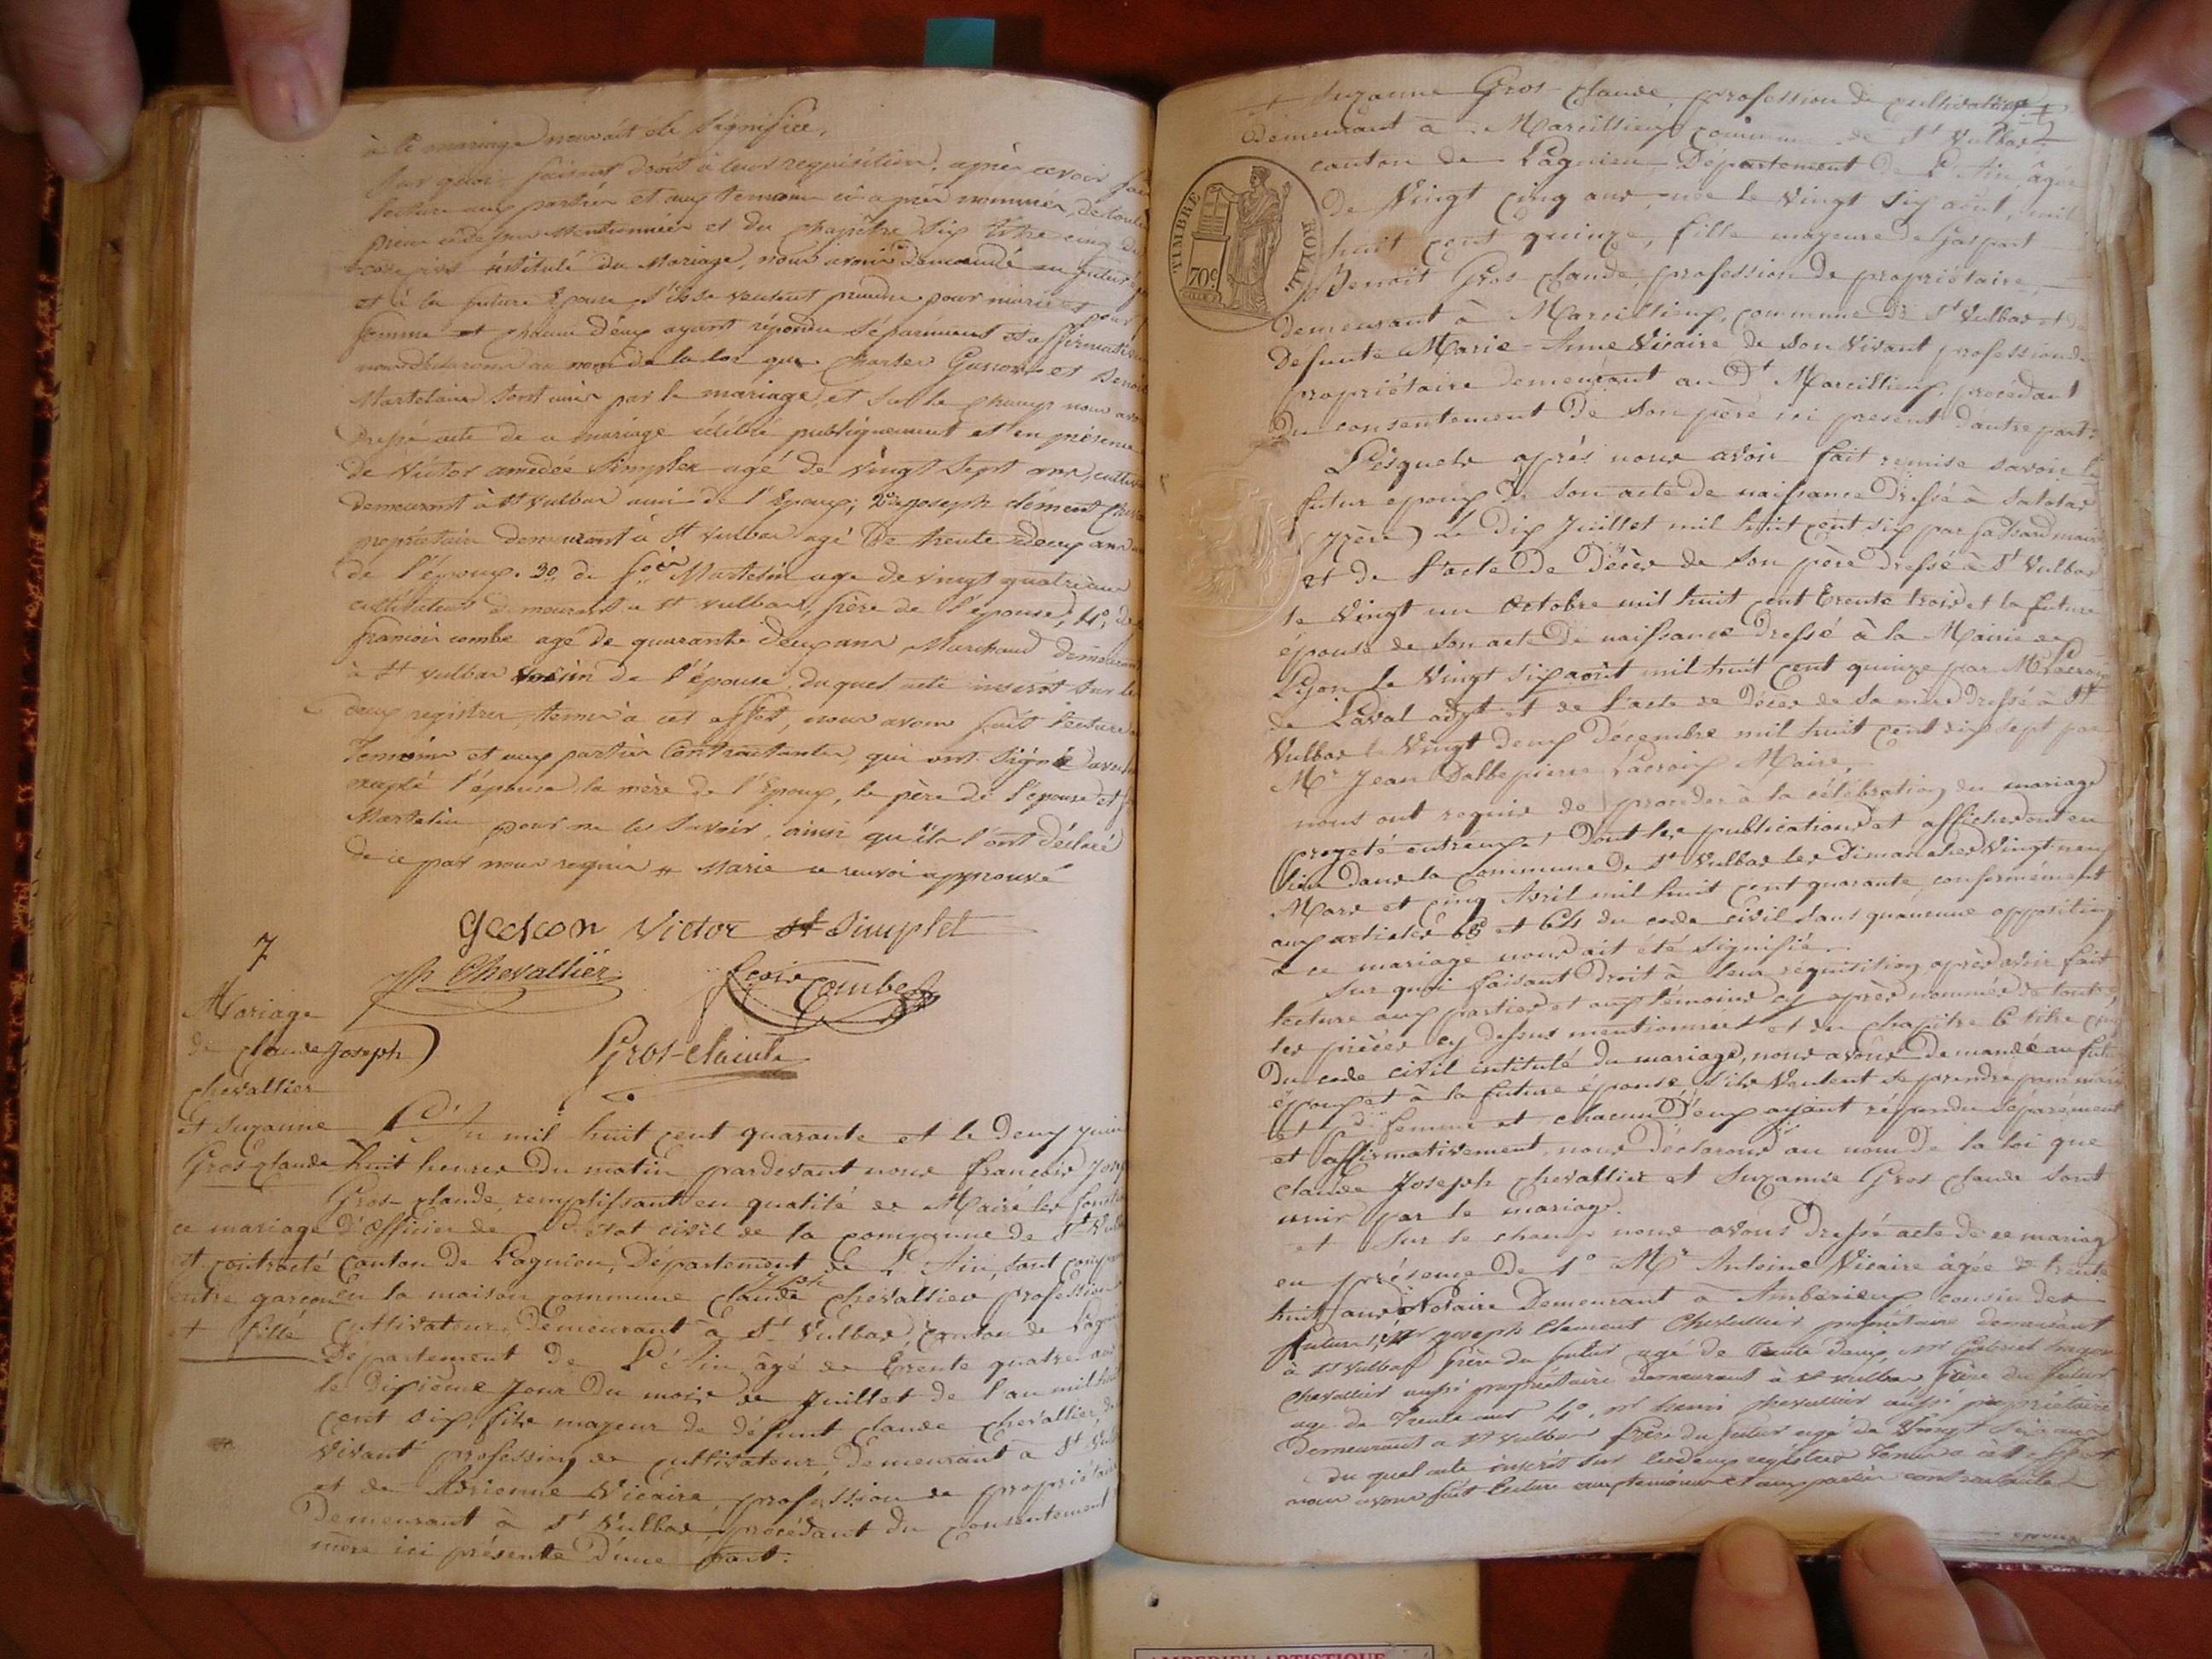 à ce mariage nous ait été signifiée,
Sur quoi faisant droit à leur requisition, après avoir
lecture aux parties et aux temoins ci après nommés, de toutes
pieces cidessus mentionnées et du chapitre six titre cinq du
code civil intitulé du Mariage, nous avons demandé au futur
et à la future Epouse s'ils veulent prendre pour mari et pour
femme et chacun d'eux ayant répondu séparément et affirmativ
nous declarons au nom de la loi que Charles et
sont unis par le mariage, et sur le champ nous avons
Dressé acte de ce mariage célébré publiquement et en présence
de Victor amedée Simplet agé de vingt sept ans, cultiv
demeurant à St Vulbas ami de l'Epoux; 2º joseph clément Cheva
propriétaire demeurant à St Vulbas agé de trente deux ans
de l'époux. 3º de fcois Martelin age de vingt quatre ans
cultivateur demeurant a St vulbas, frère de l'épouse; 4º, de
francois combe agé de quarante deux ans Marchand demeurant
à St vulbas voisin de l'épouse, duquel acte inscrit sur les
deux registres, tenus à cet effet, nous avons fait lecture
Temoins et aux parties Contractantes, qui ont signé avec
excepté l'épouse, la mère de l'Epoux, le père de l'épouse et
Martelin pour ne le savoir, ainsi qu'ils l'ont déclaré
de ce par nous requis # Marie ce renvoi approuvé
Victor St Simplet
Jh Chevallier fcois Combe
Gros-claude
7
Mariage
de claude Joseph
chevallier
et Suzanne
Gros claude
ce mariage
est contracté
entre garcon
et fille
L'An mil huit cent quarante et le deux juin
huit heures du matin pardevant nous francois Jose
Gros-claude, remplissant en qualité de Maire les fonctio
d'officier de l'état civil de la commune de St Vulb
canton de Lagnieu, Département de L'Ain, sont comparu
en la maison commune claude Joseph chevallier profession
cultivateur, demeurant à St Vulbas, canton de Lagni
Département de L'Ain, âgé de trente quatre ans
le dixième jour du mois de Juillet de l'an mil huit
cent six, fils majeur de défunt claude chevallier, de
vivant profession de cultivateur, demeurant à St Vul
et de Adrienne Vicaire, profession de propriétaire
Demeurant à St Vulbas, procédant du consentement
mère ici présente d'une part.
TIMBRE ROYAL
70c
et Suzanne Gros claude, profession de cultivatrice
Demeurant à Marcillieux commune de St Vulbas
canton de Lagnieu Département de L'Ain, âgée
de Vingt cinq ans, née le vingt six août, mil
huit cent quinze, fille majeure de Gaspart
Benoit Gros claude, profession de propriétaire,
demeurant à Marcillieux, commune de St Vulbas et de
Défunte Marie-Anne Vicaire de son vivant profession de
propriétaire demeurant au Dt Marcillieux, procédant
du consentement de son père ici present d'autre part.
Lesquels après nous avoir fait remise savoir le
futur epoux de son acte de naissance Dressé à
(Isère) Le Dix Juillet mil huit cent six par maire
et de l'acte de Décès de son père dressé à St Vulbas
le vingt un Octobre mil huit cent trente trois et la future
épouse de son acte de naissance Dressé à la Mairie de
Lyon le Vingt six août mil huit cent quinze par Mr Lacroix
de Laval adjt et de l'acte de Décès de sa mère dressé à St
Vulbas le Vingt deux Décembre mil huit cent dix sept par
Mr Jean Dalbepierre Lacroix Maire,
nous ont requis de procéder à la célébration du mariage
projeté entr'eux! dont les publications et affiches ont eu
lieu dans la commune de St Vulbas les Dimanches vingt neuf
Mars et cinq Avril mil huit cent quarante, conformément
aux articles 63 et 64 du code civil sans qu'aucune opposition
à ce mariage nous ait été signifié.
Sur quoi faisant Droit à leur réquisition après avoir fait
lecture aux parties et aux témoins cy après nommés de toutes
les pièces cy dessus mentionnées et du chapitre 6 titre cinq
Du code civil intitulé du mariage, nous avons demandé au futur
époux et à la future épouse s'ils veulent se prendre pour mari
et femme et chacun D'eux ayant répondu séparément
et affirmativement, nous déclarons au nom de la loi que
Claude Joseph chevallier et Suzanne Gros claude sont
unis par le mariage.
et sur le champ nous avons dressé acte de ce mariage
en présence de 1º Mr Antoine Vicaire âgée de trente
huit ans Notaire Demeurant à Ambérieux cousin des
futurs, Mr joseph Clement Chevallier propriétaire demeurant
à St vulbas frère du futur agé de Trente deux, Mr Gabriel
chevallier aussi propriétaire demeurant à St vulbas frère du futur
age de Trente ans 4º, Mr henri chevallier aussi propriétaire
demeurant a St vulbas frère du futur agé de Vingt ans
du quel acte inscrit sur les deux registres tenus a cet effet
nous avons fait lecture aux temoins et aux parties contractantes
AMBERIEU ARTISTIQUE